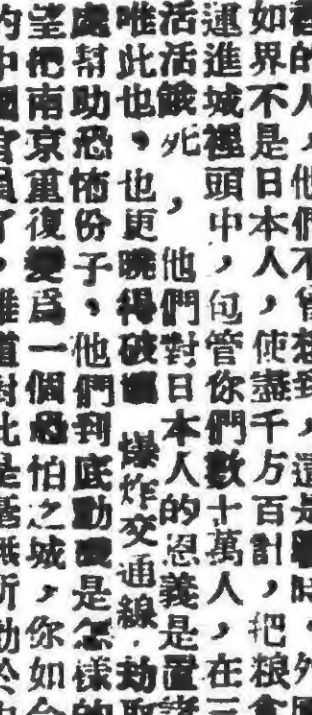 的人，他們不曾想到，還是時，外
如界不是日本人，使盡千方百計，把粮食
運進城裡頭中，包管你們數十萬人，在三
活活餓死，他們對日本人的恩義是置諸
唯此也，也更曉得破壞爆炸交通線，劫取
處幫助恐怖份子，他們到底動機是怎樣的
望把南京重復變爲一個恐怕之城，你如今
的中國官員了，難道對此是毫無所動於